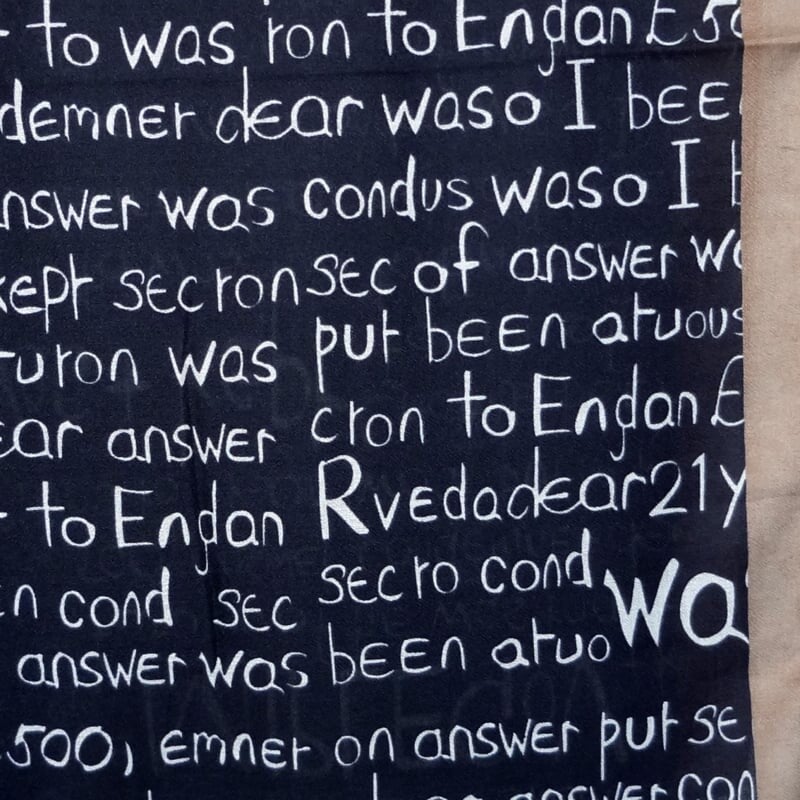 to was ron to Engan £50
demner dear waso I bee
answer was condus waso I
kept secronsec of answer wa
uron was put been atuous
ear answer cron to Engan £
to Engan Rvedadear21y
n cond sec secro cond wa
answer was been atuo
500, emner on answer put se
answer con